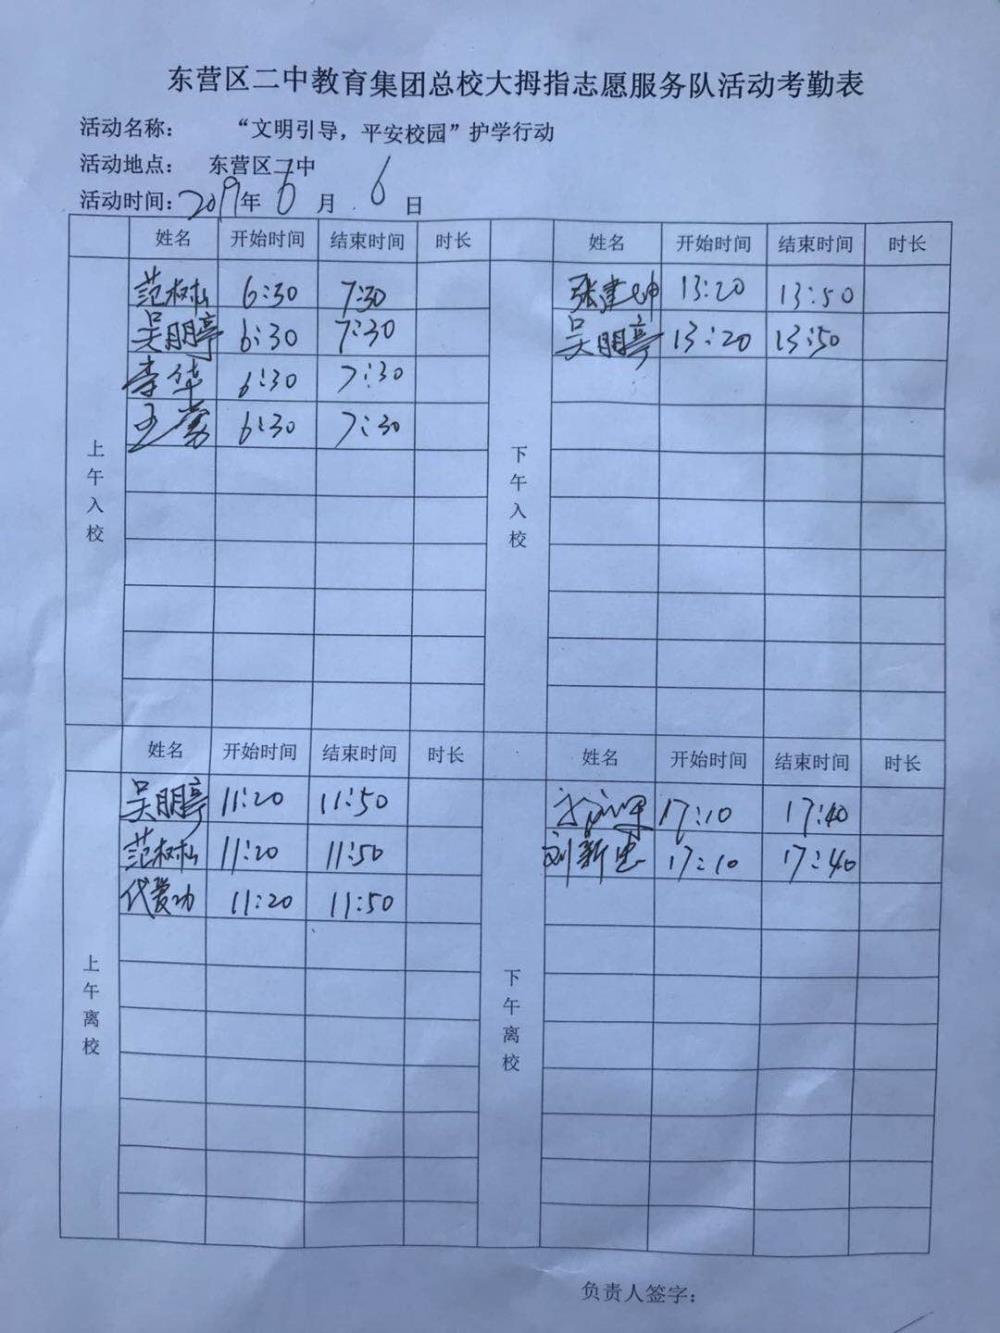 东营区二中教育集团总校大拇指志愿服务队活动考勤表
活动名称： “文明引导，平安校园”护学行动
活动地点： 东营区二中
活动时间：2019年6月6日
姓名 开始时间 结束时间 时长 姓名 开始时间 结束时间 时长
上午入校
范树松 6:30 7:30
吴朋亭 6:30 7:30
李华 6:30 7:30
王 6:30 7:30
下午入校
张建坤 13:20 13:50
吴朋亭 13:20 13:50
姓名 开始时间 结束时间 时长 姓名 开始时间 结束时间 时长
上午离校
吴朋亭 11:20 11:50
范树松 11:20 11:50
代爱功 11:20 11:50
下午离校
17:10 17:40
刘新忠 17:10 17:40
负责人签字：